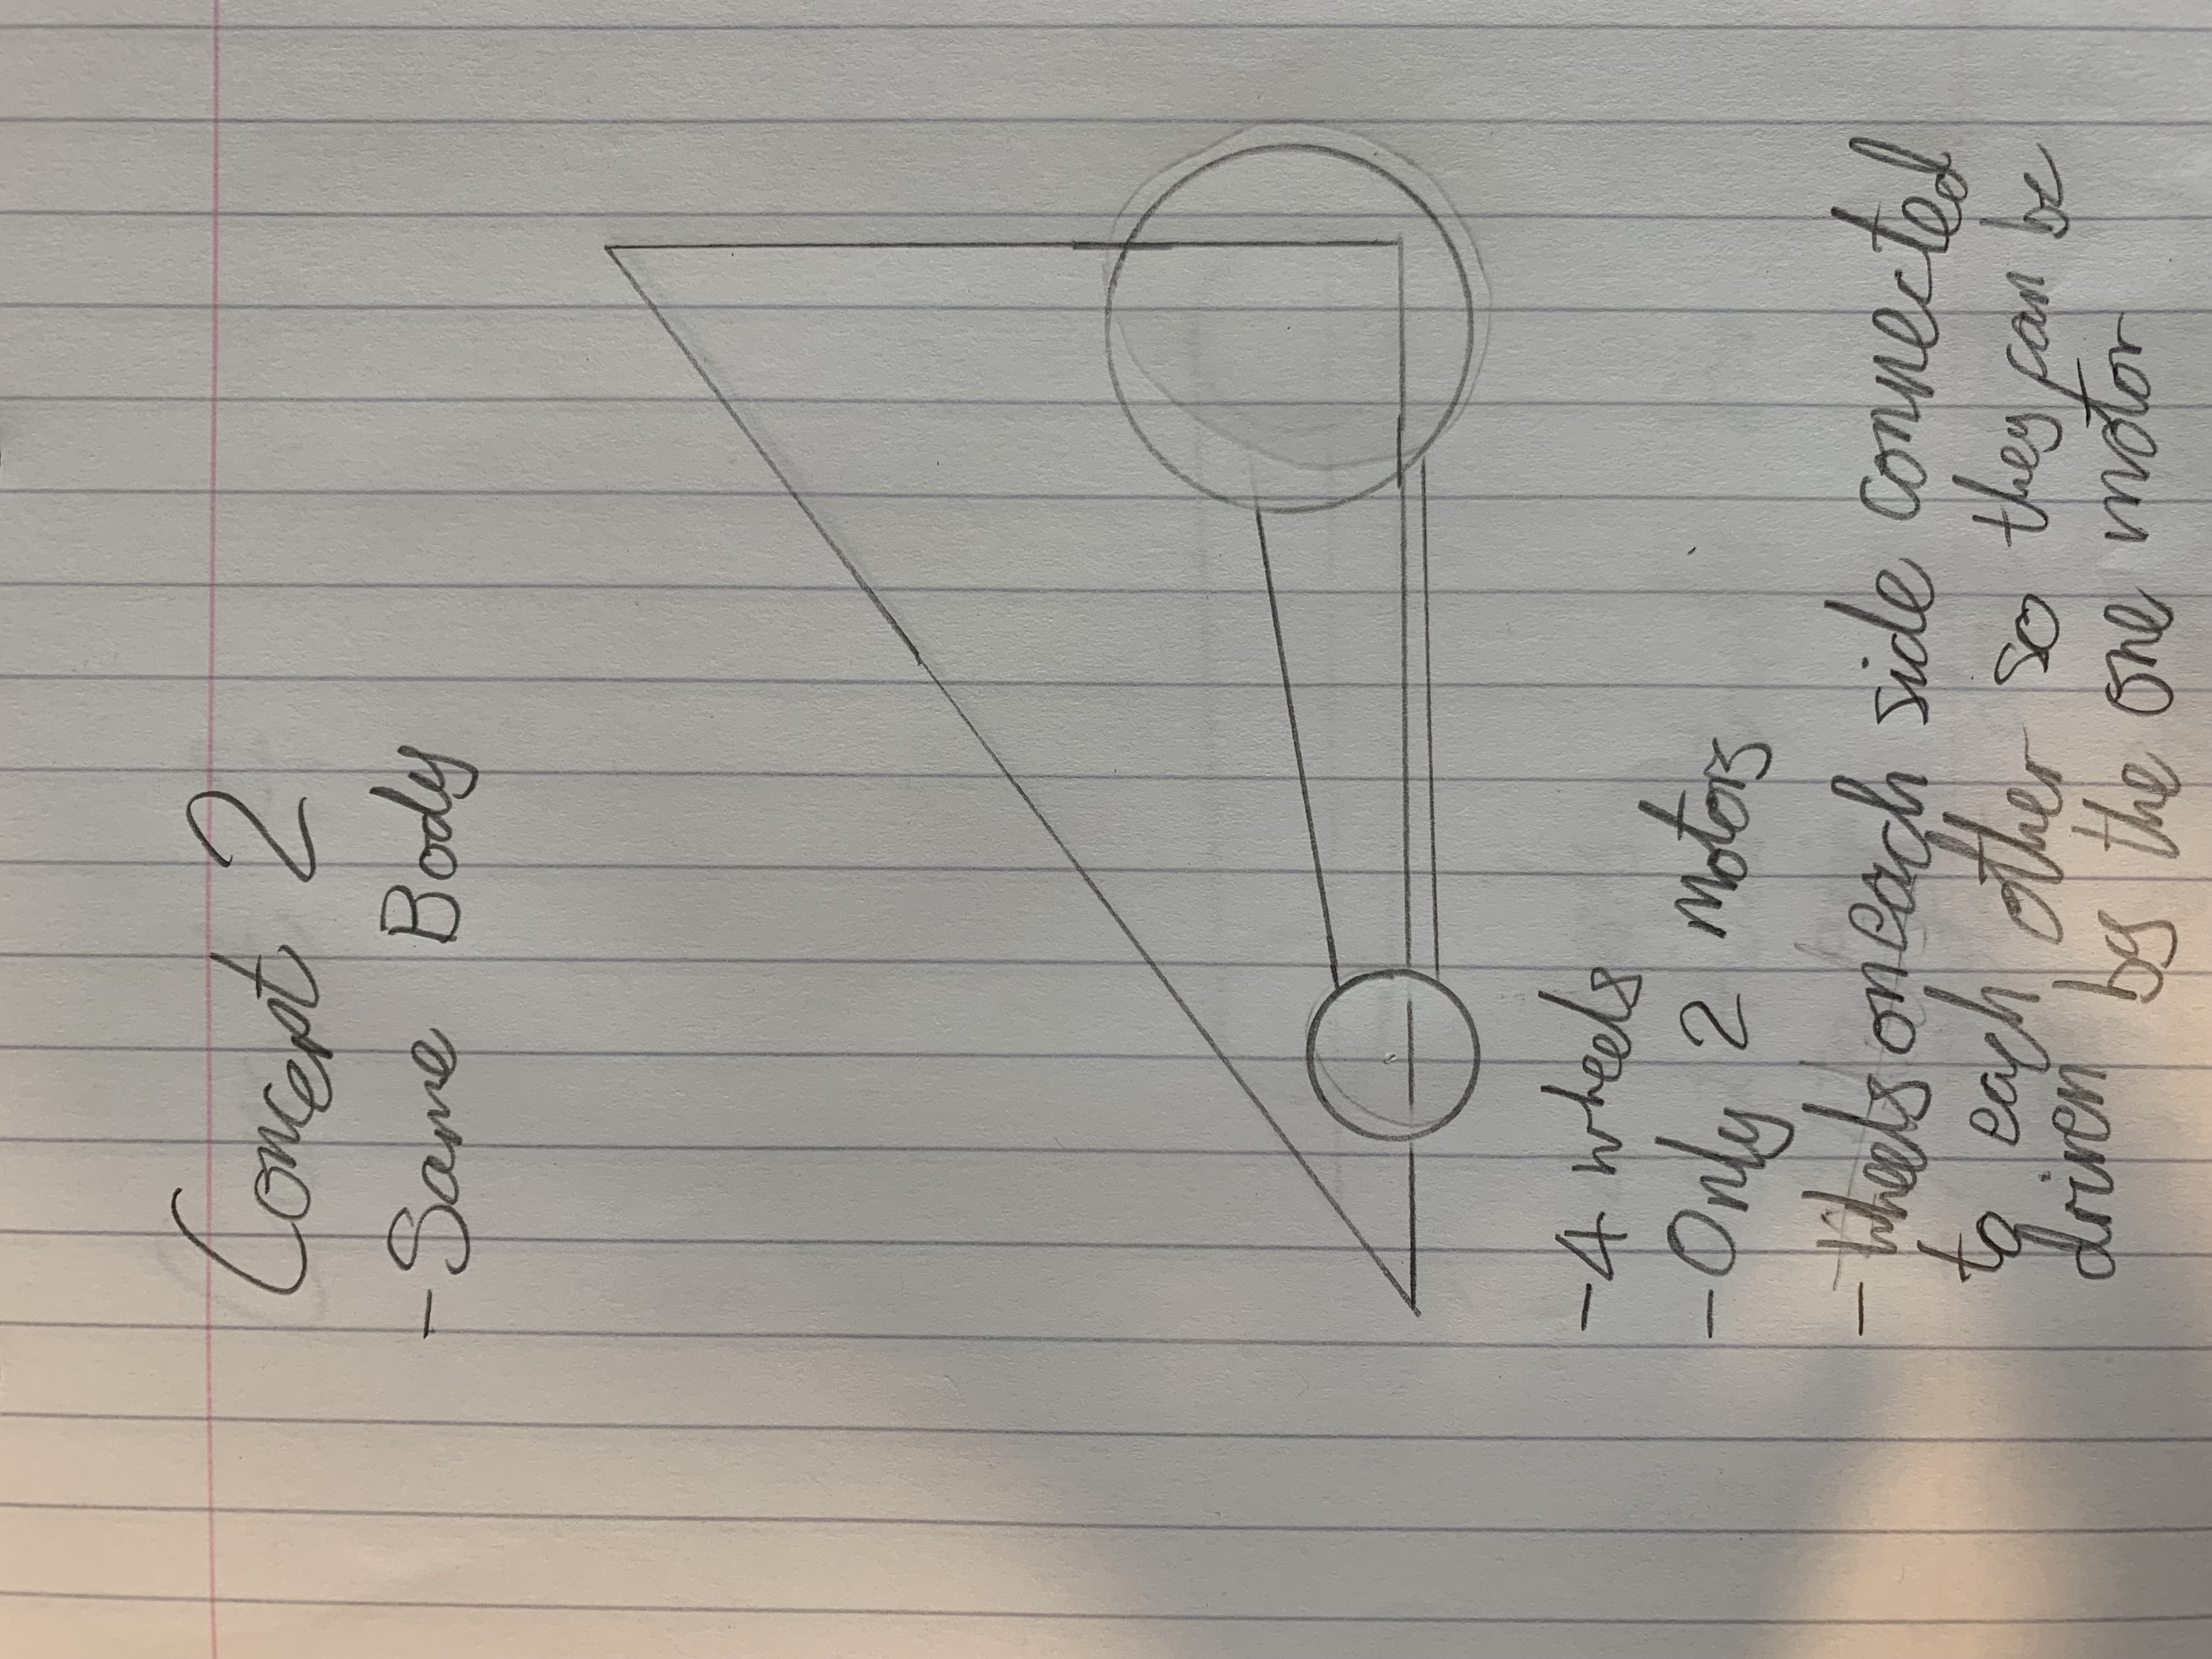 Concept 2
- Same Body
- 4 wheels
- Only 2 motors
- Wheels on each side connected
to each other so they can be
driven by the one motor